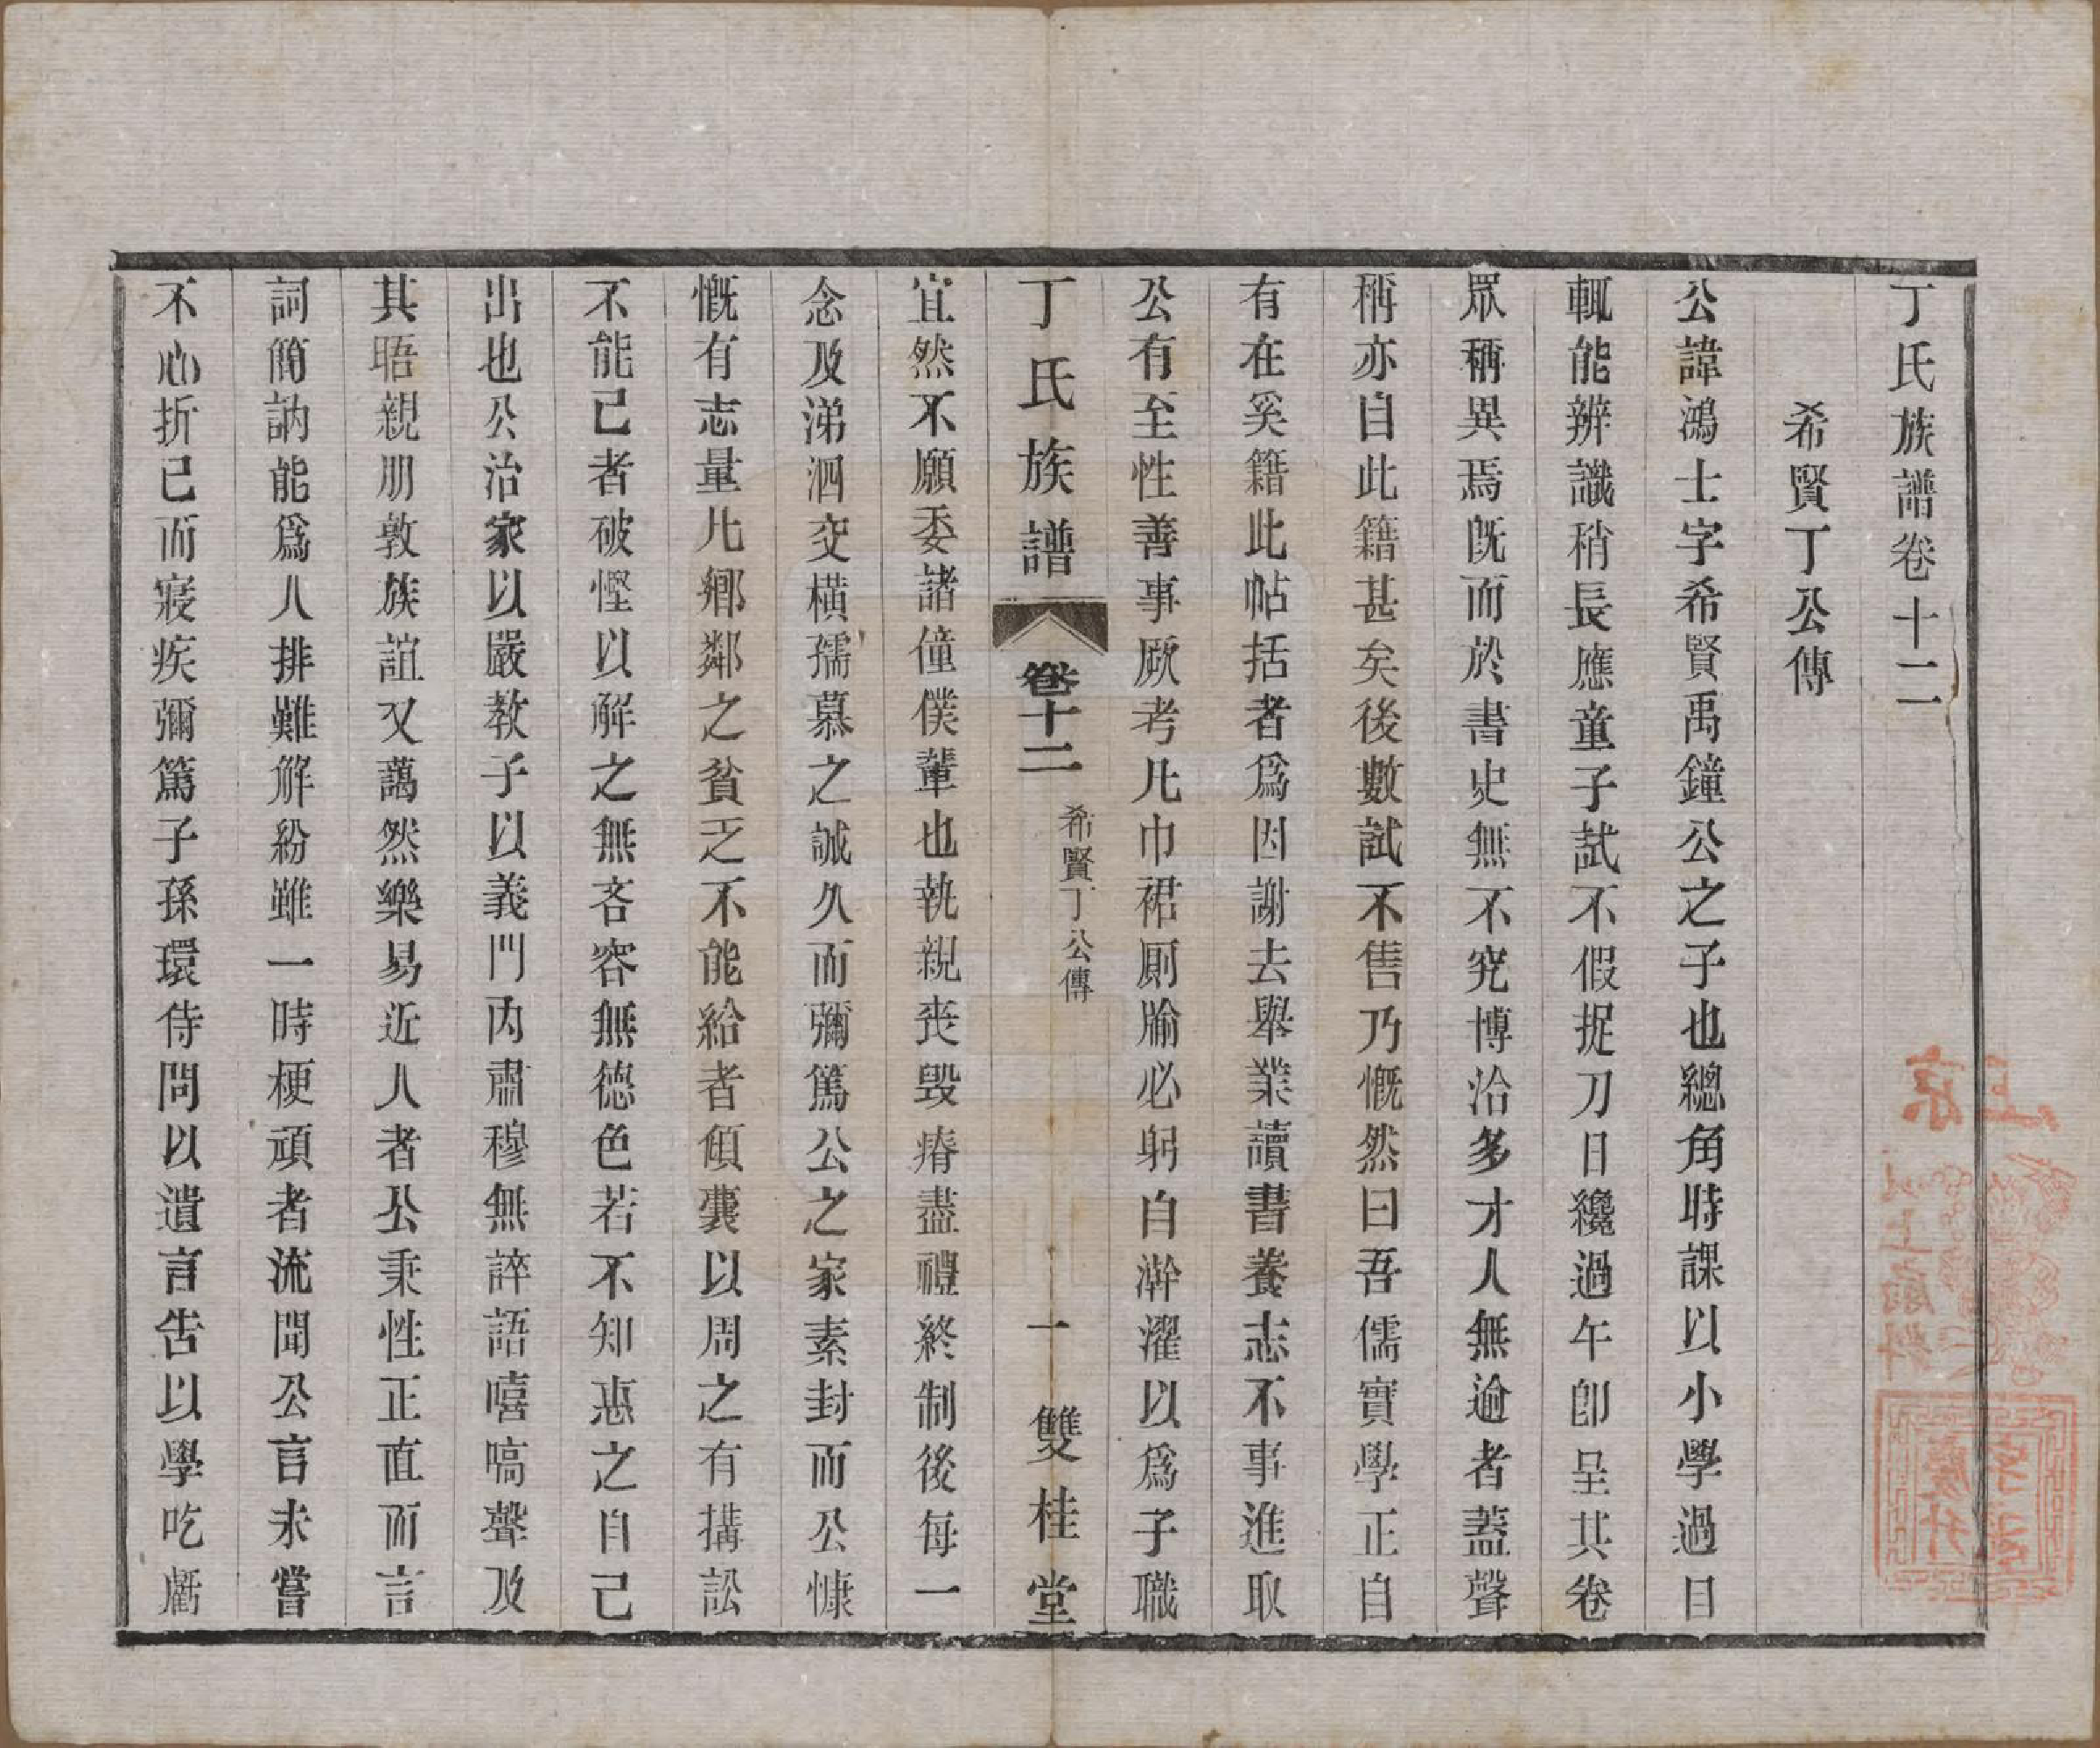 丁氏族譜卷十二
希賢丁公傳
公諱鴻士字希賢禹鐘公之子也總角時課以小學過日
輒能辨讖稍長應童子試不假捉刀日纔過午卽呈其卷
眾稱異焉旣而於書史無不究博洽多才人無逾者蓋聲
稱亦自此籍甚矣後數試不售乃慨然曰吾儒實學正自
有在奚籍此帖括者爲因謝去舉業讀書養志不事進取
公有至性善事厥考凡巾裙厠牏必躬自澣濯以爲子職
丁氏族譜
卷十二
希賢丁公傳
一
雙桂堂
宜然不願委諸僮僕輩也執親喪毀瘠盡禮終制後每一
念及涕泗交橫孺慕之誠久而彌篤公之家素封而公慷
慨有志量凡鄉鄰之貧乏不能給者傾囊以周之有搆訟
不能已者破慳以解之無吝容無德色若不知惠之自己
出也公治家以嚴教子以義門內肅穆無誶語嘻嗃聲及
其晤親朋敦族誼又藹然樂易近人者公秉性正直而言
詞簡訥能爲人排難解紛雖一時梗頑者流聞公言未嘗
不心折已而寢疾彌篤子孫環侍問以遺言告以學吃虧